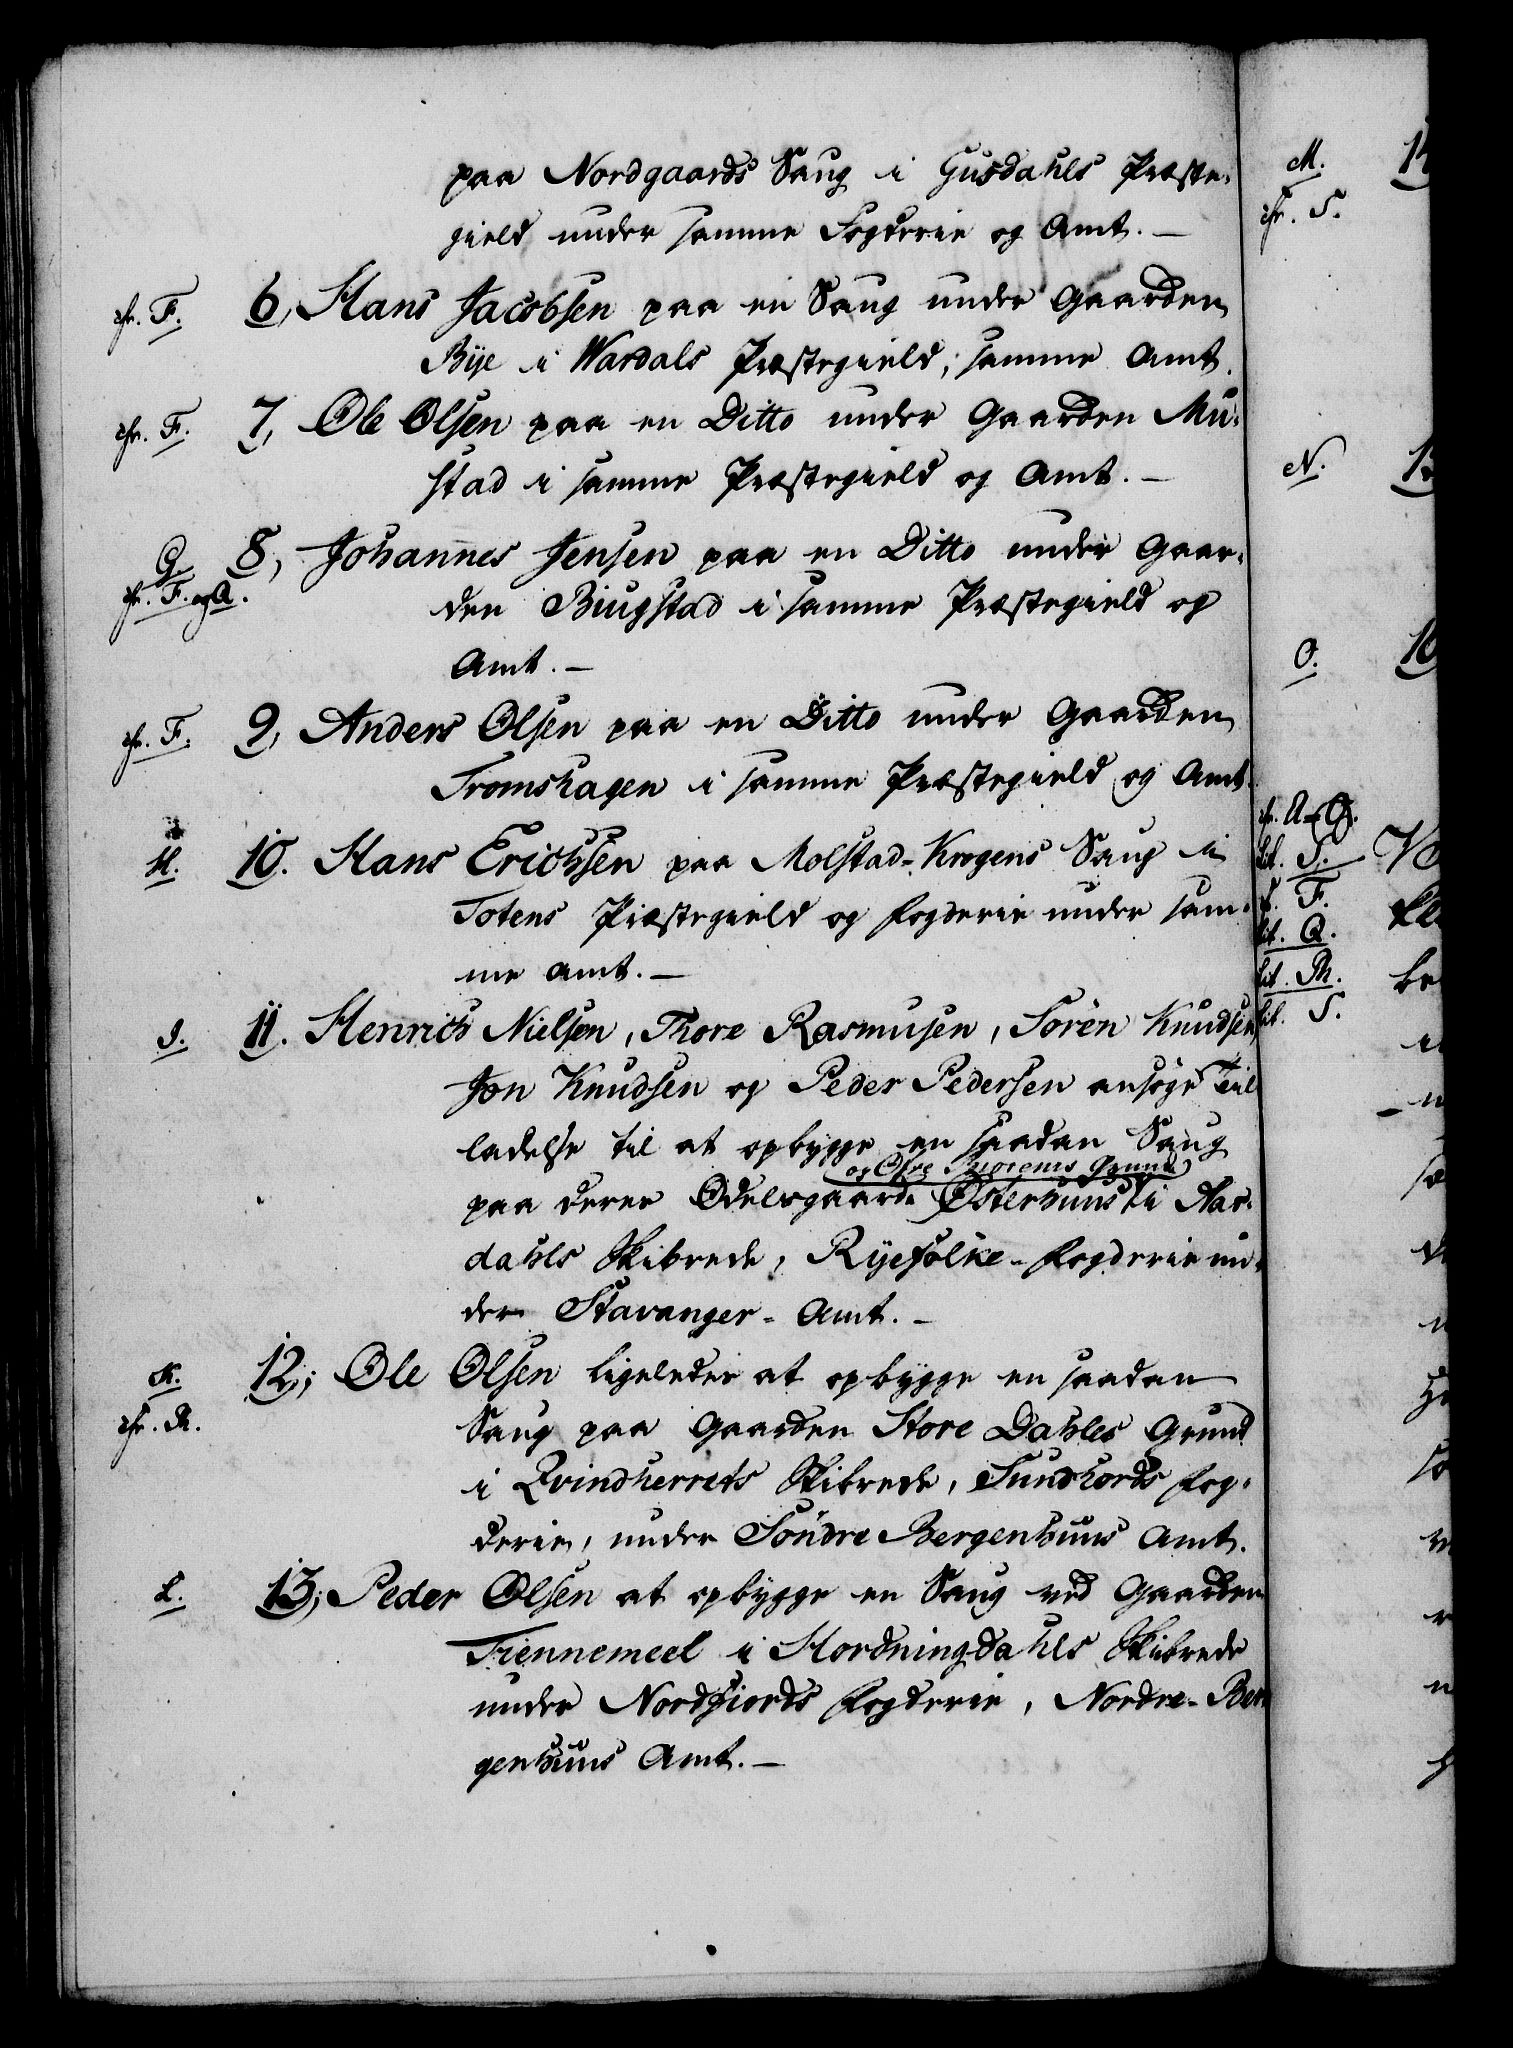 paa Nordgaards Saug i Gusdahls Præste-
gield under samme Fogderie og Amt. —
cfr. F. 6, Hans Jacobsen paa en Saug under Gaarden
Bye i Wardals Præstegield, samme Amt.
cfr. F. 7, Ole Olsen paa en Ditto under Gaarden Mu-
stad i samme Præstegield og Amt. —
G. 8, Johannes Jensen paa en Ditto under Gaar-
cfr. F. og Q. den Biugstad i samme Præstegield og
Amt. —
cfr. F. 9, Anders Olsen paa en Ditto under Gaarden
Tromshagen i samme Præstegield og Amt.
H. 10. Hans Erichsen paa Molstad-Krogens Saug i
Totens Præstegield og Fogderie under sam-
me Amt. —
I. 11. Henrich Nielsen, Thore Rasmusen, Sören Knudsen
Jon Knudsen og Peder Pedersen ansöge Til
ladelse til at opbygge en saadan Saug
og Øfre Grund
paa deres Odelsgaarde Østerhuus i Aar-
dahls Skibrede, Ryefolke-Fogderie un-
der Stavanger-Amt. —
K. 12; Ole Olsen ligeledes at opbygge en saadan
cfr. R. Saug paa Gaarden Store Dahles Grund
i Qvindherrets Skibrede, Sundhords Fog-
derie, under Söndre Bergenhuus Amt.
L. 13; Peder Olsen at opbygge en Saug ved Gaarden
Tiennemeel i Hordningdahls Skibrede
under Nordfiords Fogderie, Nordre-Ber
genhuus Amt. —
M. 14
cfr. S.
N.
O. 16
cfr.
Lit. S.
F.
Lit. Q.
Lit.
Lit. S.